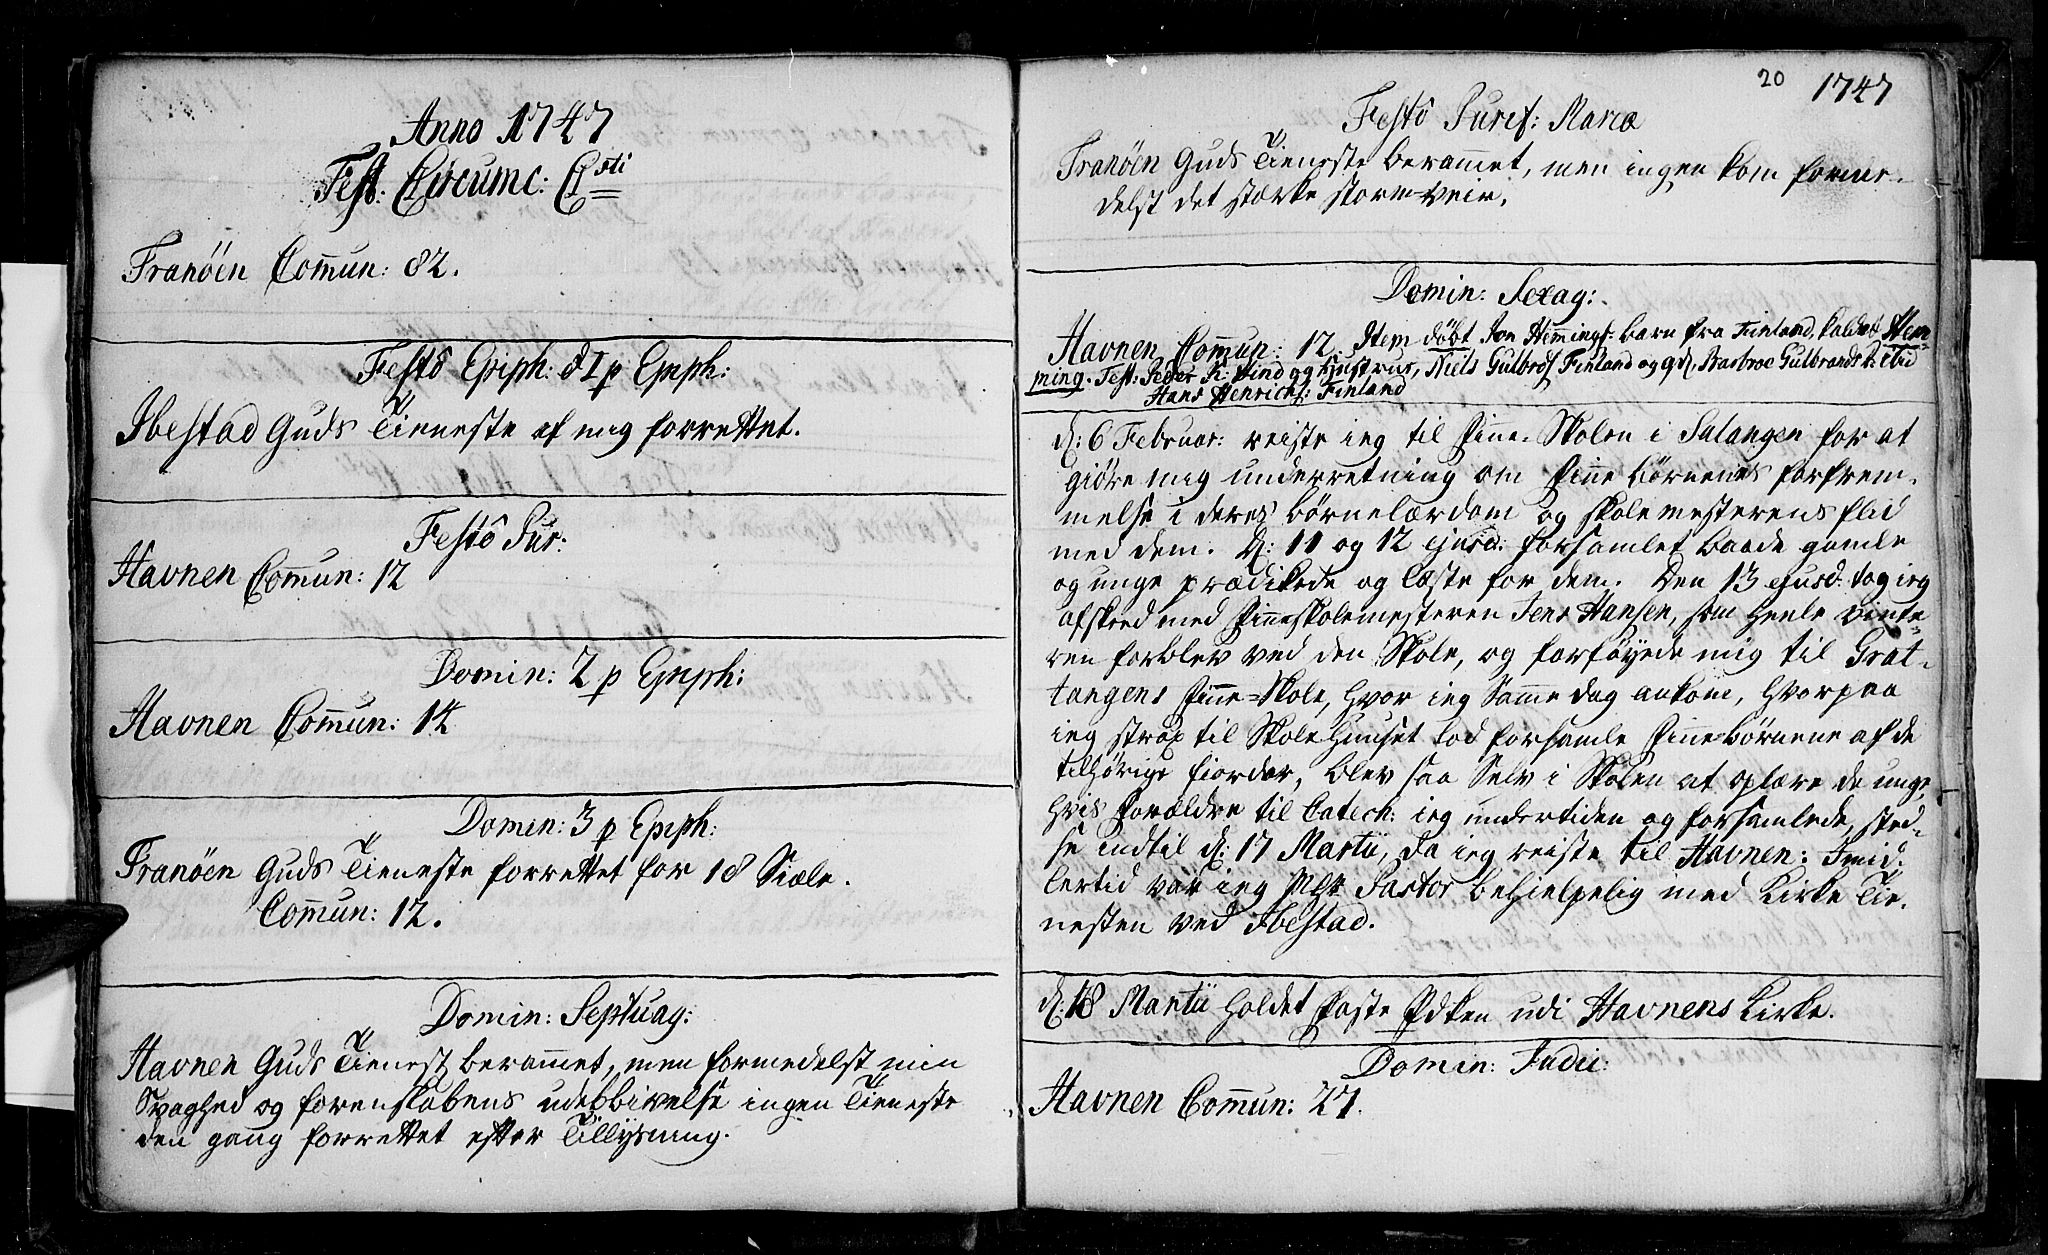 Anno 1747
Fest: Circumc: Csti
Tranöen Com̄un: 82.
Festô Epiph: & 1 p Epiph:
Ibestad Guds Tieneste af mig forrettet.
Festô Pur:
Havnen Com̄un: 12
Domin: 2 p Epiph:
Havnen Com̄un: 14
Domin: 3 p Epiph:
Tranöen Guds Tieneste forrettet for 18 Siæle.
Com̄un: 12.
Domin: Septuag:
Havnen Guds Tienest beram̄et, men formedelst min
Svaghed og forenskabens udeblivelse ingen Tieneste
den gang forrettet efter Tillysning.
20 1747
Festô Purif: Mariæ
Tranöen Guds Tieneste beram̄et, men ingen kom forme-
delst det stærke storm-veir.
Domin: Sexag:
Havnen Com̄un: 12. Item döbt Jon Hem̄ings: barn fra Finland, kaldet Hem-
ming. Test: Peder K: Hind og Hustrue, Niels Gulbrds: Finland og Barbroe Gulbrands
Hans Henrichs: Finland
d: 6 Februar: reiste ieg til Fin̄e-Skolen i Salangen for at
giöre mig underretning om Fin̄e börnenes forfrem-
melse i deres börnelærdom og skolemesterens flid
med dem. d: 11 og 12 ejusd: forsamlet baade gamle
og unge prædikede og læste for dem. Den 13 ejusd: tog ieg
afskeed med Fin̄eskolemesteren Jens Hansen, som heele vinte-
ren forblev ved den Skole, og forföyede mig til Grat-
tangens Fin̄e-Skole, hvor ieg Samme dag ankom, hvorpaa
ieg strax til Skolehuuset lod forsamle Fin̄ebörnene af de
tilhörige fiorder, blev saa Selv i Skolen at oplære de unge,
hvis forældre til Catech: ieg undertiden og forsamlede, sted-
se indtil d: 17 Martii, da ieg reiste til Havnen: Imid-
lertid var ieg Pastor behielpelig med Kirke Tie-
nesten ved Ibestad.
d: 18 Martii holdet Faste Pdken udi Havnens Kirke.
Domin: Judic:
Havnen Com̄un: 27.